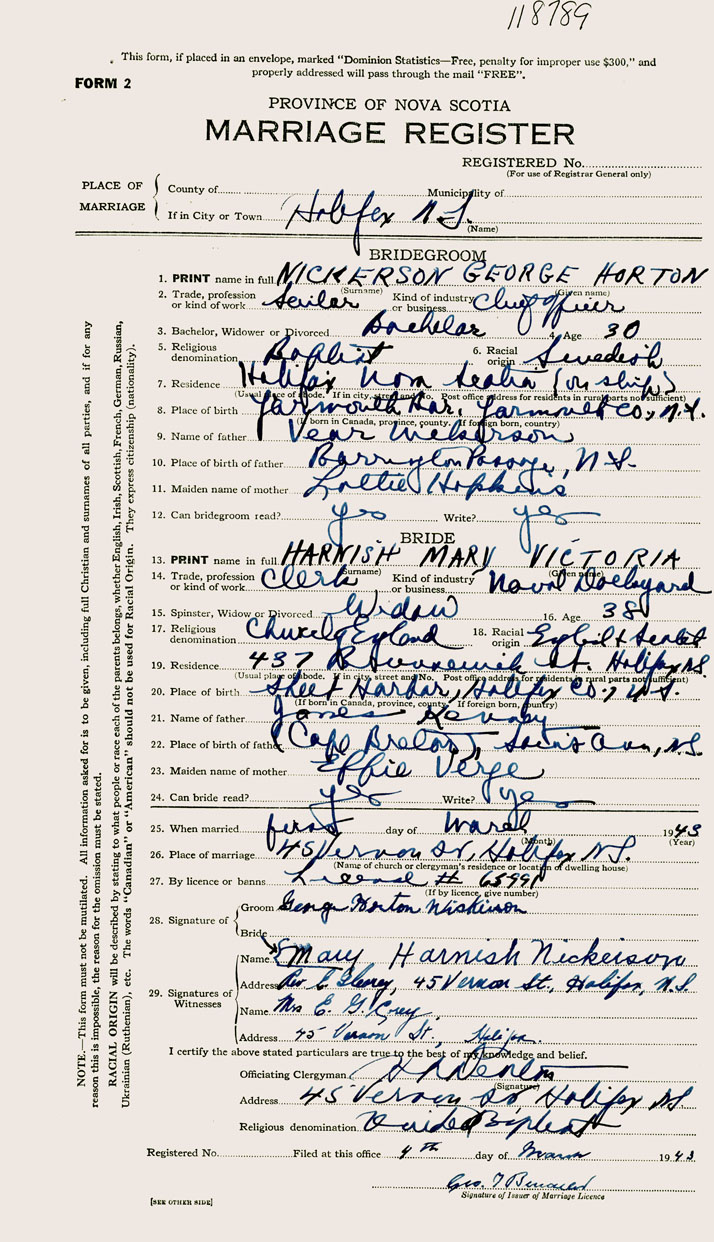 118789
This form, if placed in an envelope, marked "Dominion Statistics—Free, penalty for improper use $300," and
properly addressed will pass through the mail "FREE".
FORM 2
PROVINCE OF NOVA SCOTIA
MARRIAGE REGISTER
REGISTERED No.
(For use of Registrar General only)
PLACE OF MARRIAGE
County of Municipality of
If in City or Town Halifax N.S.
(Name)
BRIDEGROOM
1. PRINT name in full NICKERSON GEORGE HORTON
(Surname) (Given name)
2. Trade, profession or kind of work Sailor Kind of industry or business Chief officer
3. Bachelor, Widower or Divorced Bachelor 4. Age 30
5. Religious denomination Baptist 6. Racial origin Swedish
7. Residence Halifax Nova Scotia (on ship)
(Usual place of abode. If in city, street and No. Post office address for residents in rural parts not sufficient)
8. Place of birth Yarmouth Har, Yarmouth Co., N.S.
(If born in Canada, province, county. If foreign born, country)
9. Name of father Nickerson
10. Place of birth of father Barrington Passage, N.S.
11. Maiden name of mother Lottie Hopkins
12. Can bridegroom read? yes Write? yes
BRIDE
13. PRINT name in full HARNISH MARY VICTORIA
(Surname) (Given name)
14. Trade, profession or kind of work Clerk Kind of industry or business Naval Dockyard
15. Spinster, Widow or Divorced Widow 16. Age 38
17. Religious denomination Church of England 18. Racial origin English &
19. Residence 437 Brunswick St. Halifax N.S.
(Usual place of abode. If in city, street and No. Post office address for residents in rural parts not sufficient)
20. Place of birth Sheet Harbor, Halifax Co., N.S.
(If born in Canada, province, county. If foreign born, country)
21. Name of father James
22. Place of birth of father (Cape Breton), Saint Ann, N.S.
23. Maiden name of mother Effie Verge
24. Can bride read? yes Write? yes
25. When married first day of March 1943
(Month) (Year)
26. Place of marriage 45 Vernon St, Halifax N.S.
(Name of church or clergyman's residence or location of dwelling house)
27. By licence or banns License #
(If by licence, give number)
28. Signature of
Groom George Horton Nickerson
Bride
29. Signatures of Witnesses
Name Mary Harnish Nickerson
Address 45 Vernon St., Halifax, N.S.
Name Mrs E. G.
Address 45 Vernon St., Halifax.
I certify the above stated particulars are true to the best of my knowledge and belief.
Officiating Clergyman
(Signature)
Address 45 Vernon St Halifax NS
Religious denomination United Baptist
Registered No. Filed at this office 4th day of March 1943
Geo. T
Signature of Issuer of Marriage Licence
[SEE OTHER SIDE]
NOTE.—This form must not be mutilated. All information asked for is to be given, including full Christian and surnames of all parties, and if for any
reason this is impossible, the reason for the omission must be stated.
RACIAL ORIGIN will be described by stating to what people or race each of the parents belongs, whether English, Irish, Scottish, French, German, Russian,
Ukrainian (Ruthenian), etc. The words "Canadian" or "American" should not be used for Racial Origin. They express citizenship (nationality).